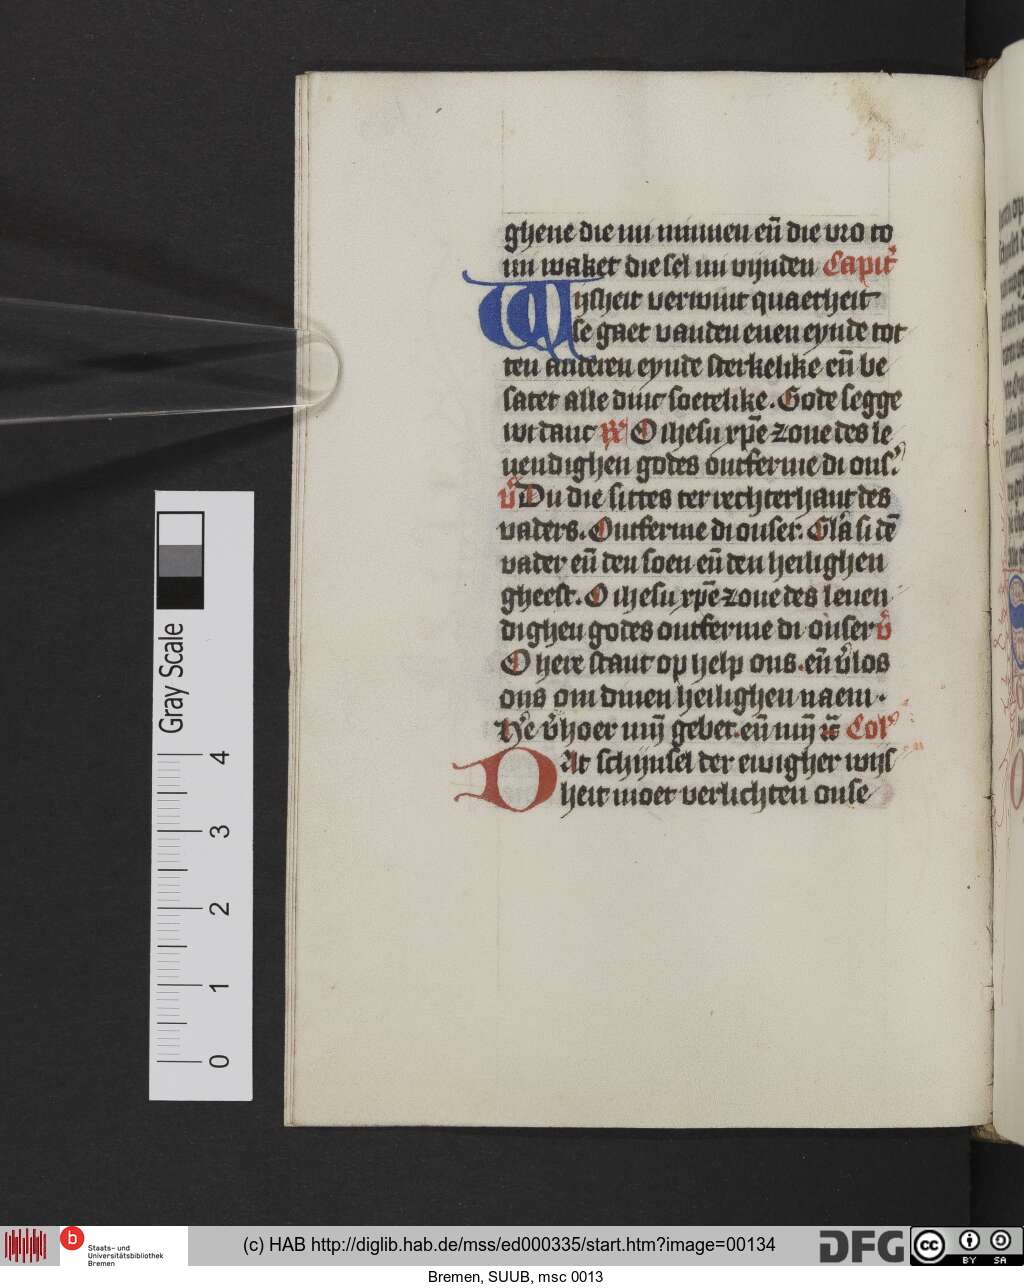 ghene die mi minnen eñ die vro to
mi waket die sel mi vijnden Capit̉
Wijsheit verwint quaetheit
Se gaet vanden enen eynde tot
ten anderen eynde sterkelike eñ be
satet alle dinc soetelike. Gode segge
wi danc R̷ O ihesu xp̄e zone des le
uendighen godes ontferme di ons̉
v̉ Du die sittes ter rechterhant des
vaders. Ontferme di onser. Gl̉a si dē
vader eñ den soen eñ den heilighen
gheest. O ihesu xp̄e zone des leuen
dighen godes ontferme di onser v̉
O here stant op help ons. eñ v̉los
ons om dinen heilighen naem.
H̉e v̉hoer mijn gebet. eñ mijn r̄ Col̉
Dat schijnsel der ewigher wijs
heit moet verlichten onse
Gray Scale
4
3
2
1
0
b
Staats- und
Universitätsbibliothek
Bremen
(c) HAB http://diglib.hab.de/mss/ed000335/start.htm?image=00134
DFG
cc
BY SA
Bremen, SUUB, msc 0013